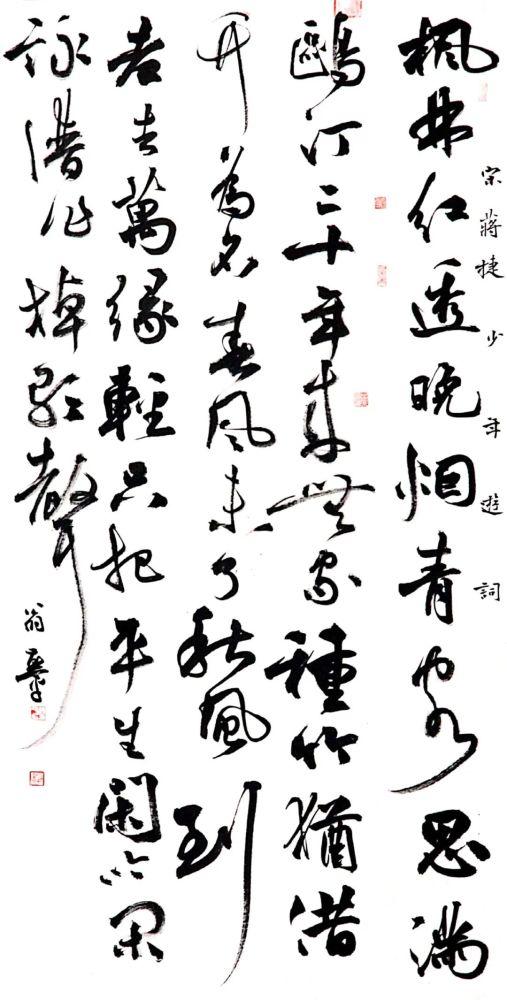 楓林红透晚烟青客思滿
宋蔣捷少年遊詞
鷗汀二十年来無家種竹猶借
竹為名春風未了秋風到
老去萬緣輕只把平生閑吟閑
詠譜作棹歌聲
翁